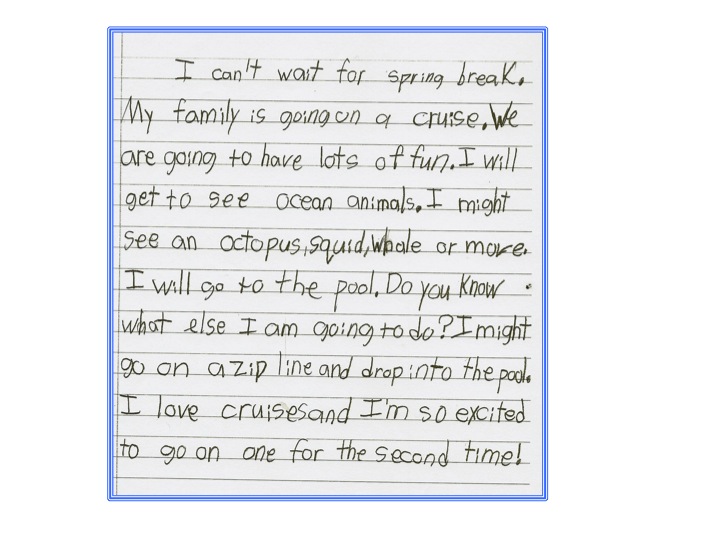 I can't wait for spring break.
My family is going on a cruise. We
are going to have lots of fun. I will
get to see ocean animals. I might
see an octopus, squid, Whale or more.
I will go to the pool. Do you Know
what else I am going to do? I might
go on a zip line and drop into the pool.
I love cruises and I'm so excited
to go on one for the second time!